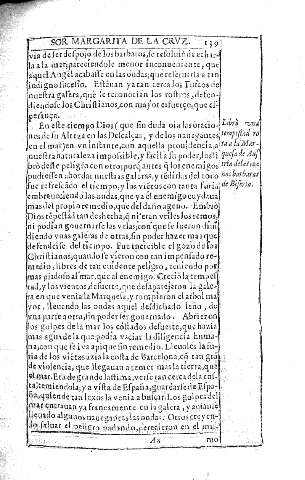 SOR MARGARITA DE LA CRVZ. 139
via de ser despojo de los barbaros, se resoluio de echar-
la a la mar, pareciendole menor inconueniente, que
aquel Angel acabasse en las ondas, que reseruarla a tan
indigno sucesso. Estauan ya tan cerca los Turcos de
nuestra galera, que se reconocian los rostros, defen-
diendose los Christianos, con mayor esfuerço, que es-
perança.
En este tiempo Dios, que sin duda oìa las oracio-
nes de su Alteza en las Descalças, y de los nauegantes
en el mar, en vn instante, con aquella prouidencia, a
nuestra naturaleza impossible, y facil a su poder, los li-
brò deste peligro con otro: porque antes que los enemigos
pudiessen abordar nuestras galeras, y rendirlas del todo
fue refrescado el tiempo, y los vientos con tanta furia
embraueciendo las ondas, que ya el enemigo cuydaua
mas del propio remedio, que del daño ageno. Embiò
Dios tempestad tan deshecha, que ni eran vtiles los remos,
ni podian gouernarse las velas; con que se fueron diui-
diendo vnas galeras de otras, sin poder hazer mas que
defenderse del tiempo. Fue increible el gozo de los
Christianos, quando se vieron con tan impensado re-
medio, libres de tan euidente peligro, teniendo por
mas piadoso al mar, que al enemigo. Crecia la tempes-
tad, y los vientos, de suerte, que desaparejaron la gale-
ra en que venia la Marquesa, y rompieron el arbol ma-
yor, lleuando las ondas aquel desdichado leño, de
vna parte a otra, sin poder ser gouernado. Abrieron
los golpes de la mar los costados de suerte, que hauia
mas agua de la que podia vaciar la diligencia huma-
na, con que se iua a pique sin remedio. Lleuales la fu-
ria de los vientos azia la costa de Barcelona, con tan gran-
de violencia, que llegauan a temer mas la tierra, que
el mar. Era de grande lastima, verse tan cerca de la cos-
ta, temiendola, y a vista de España, guardarse de Espa-
ña, quien de tan lexos la venia a buscar. Los golpes del
mar entrauan ya francamente en la galera, y auian
lleuado algunos nauegantes las ondas. Otros creyen-
do saluar el peligro nadando, perecieron en el ma-
Aa
Librò vna
tempestad ro
ta a la Mar-
quesa de Aus
tria de las ma
nos barbaras
de Biserta.